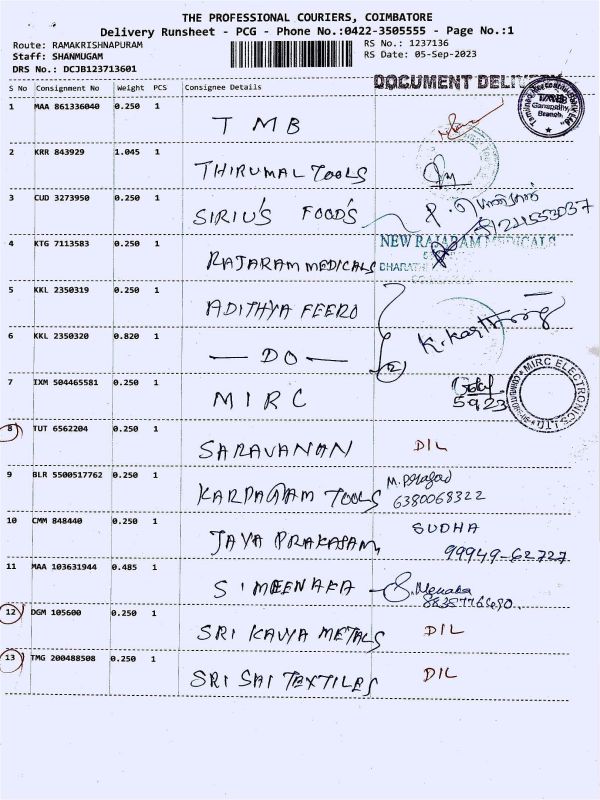 THE PROFESSIONAL COURIERS, COIMBATORE
Delivery Runsheet - PCG - Phone No.:0422-3505555 - Page No.:1
Route: RAMAKRISHNAPURAM RS No.: 1237136
Staff: SHANMUGAM RS Date: 05-Sep-2023
DRS No.: DCJB123713601
DOCUMENT DELIVERY
S No Consignment No Weight PCS Consignee Details
1 MAA 861336040 0.250 1 TMB
TMB
Ganapathy
Branch
2 KRR 843929 1.045 1 THIRUMAL TOOLS
3 CUD 3273950 0.250 1 SIRIU'S FOOD'S
4 KTG 7113583 0.250 1 RAJARAM MEDICALS
NEW RAJARAM MEDICALS
5 KKL 2350319 0.250 1 ADITHYA FEERO
6 KKL 2350320 0.820 1 — DO — (2)
7 IXM 504465581 0.250 1 MIRC
5 9 23
MIRC ELECTRONICS LTD
8 TUT 6562204 0.250 1 SARAVANAN D/L
9 BLR 5500517762 0.250 1 KARPAGAM TOOLS M. Prasad
6380068322
10 CMM 848440 0.250 1 JAYA PRAKASAM SUDHA
99949-62727
11 MAA 103631944 0.485 1 S. MEENAKA S. Menaka
12 DGM 105600 0.250 1 SRI KAVYA METALS D/L
13 TMG 200488508 0.250 1 SRI SAI TEXTILES D/L